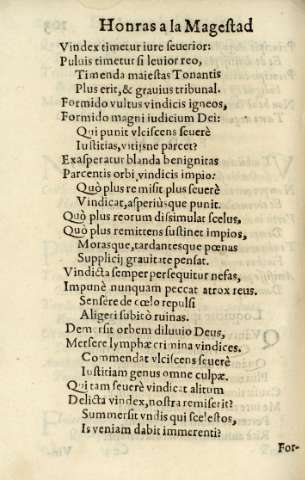 Honras a la Magestad
Vindex timetur iure seuerior:
Puluis timetur si leuior reo,
Timenda maiestas Tonantis
Plus erit, & grauius tribunal.
Formido vultus vindicis igneos,
Formido magni iudicium Dei:
Qui punit vlciscens seuerè
Iustitias, vitijsne parcet?
Exasperatur blanda benignitas
Parcentis orbi, vindicis impio:
Quò plus remisit plus seuerè
Vindicat, asperiùsque punit.
Quò plus reorum dissimulat scelus,
Quò plus remittens sustinet impios,
Morasque, tardantesque pœnas
Supplicij grauitate pensat.
Vindicta semper persequitur nefas,
Impunè nunquam peccat atrox reus.
Sensère de cœlo repulsi
Aligeri subitò ruinas.
Demersit orbem diluuio Deus,
Mersere lymphæ crimina vindices.
Commendat vlciscens seuerè
Iustitiam genus omne culpæ.
Qui tam seuerè vindicat alitum
Delicta vindex, nostra remiserit?
Summersit vndis qui scelestos,
Is veniam dabit immerenti?
For-